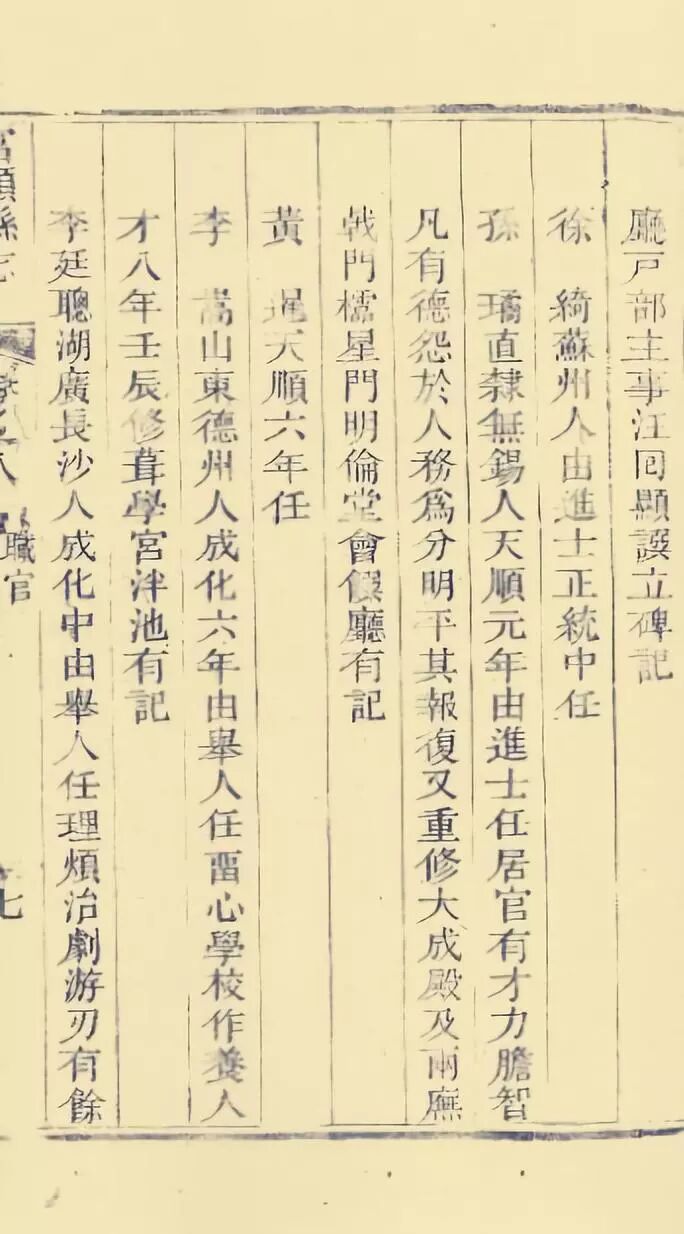 廳戸部主事江囘顯譔立碑記
徐　綺蘇州人由進士正統中任
孫　璚直隸無錫人天順元年由進士任居官有才力膽智
凡有德怨於人務爲分明平其報復又重修大成殿及兩廡
戟門櫺星門明倫堂會饌廳有記
黃　暹天順六年任
李　嵩山東德州人成化六年由舉人任畱心學校作養人
才八年壬辰修葺學宮泮池有記
李廷聰湖廣長沙人成化中由舉人任理煩治劇游刃有餘
富順縣志　卷之八　職官　七